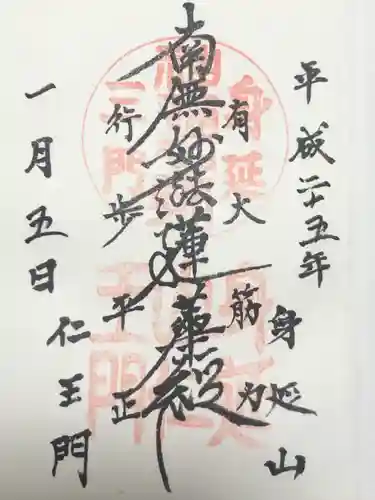 平成二十五年
身延山
有大筋力
南無妙法蓮華経
行歩平正
一月五日
仁王門